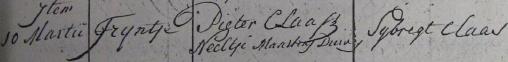 Item
10 Martii Tryntje Pieter Claasz Sybregt Claas
Neeltje Maartens